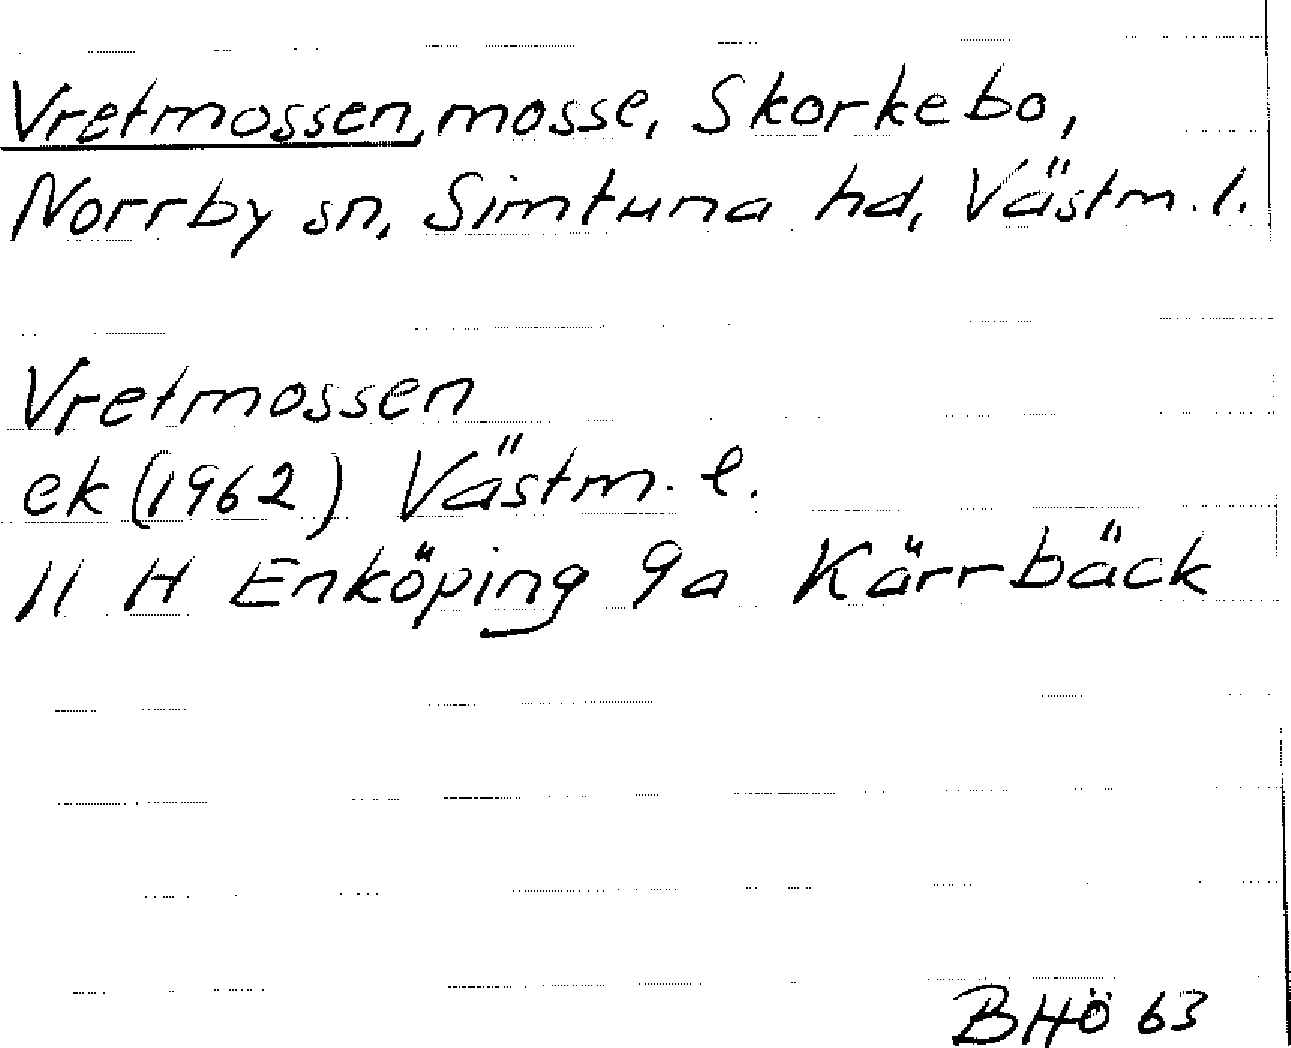 Vretmossen, mosse, Skorkebo,
Norrby sn, Simtuna hd, Västm. l.
Vretmossen
ek (1962) Västm. l.
11 H Enköping 9a Kärrbäck
BHÖ 63